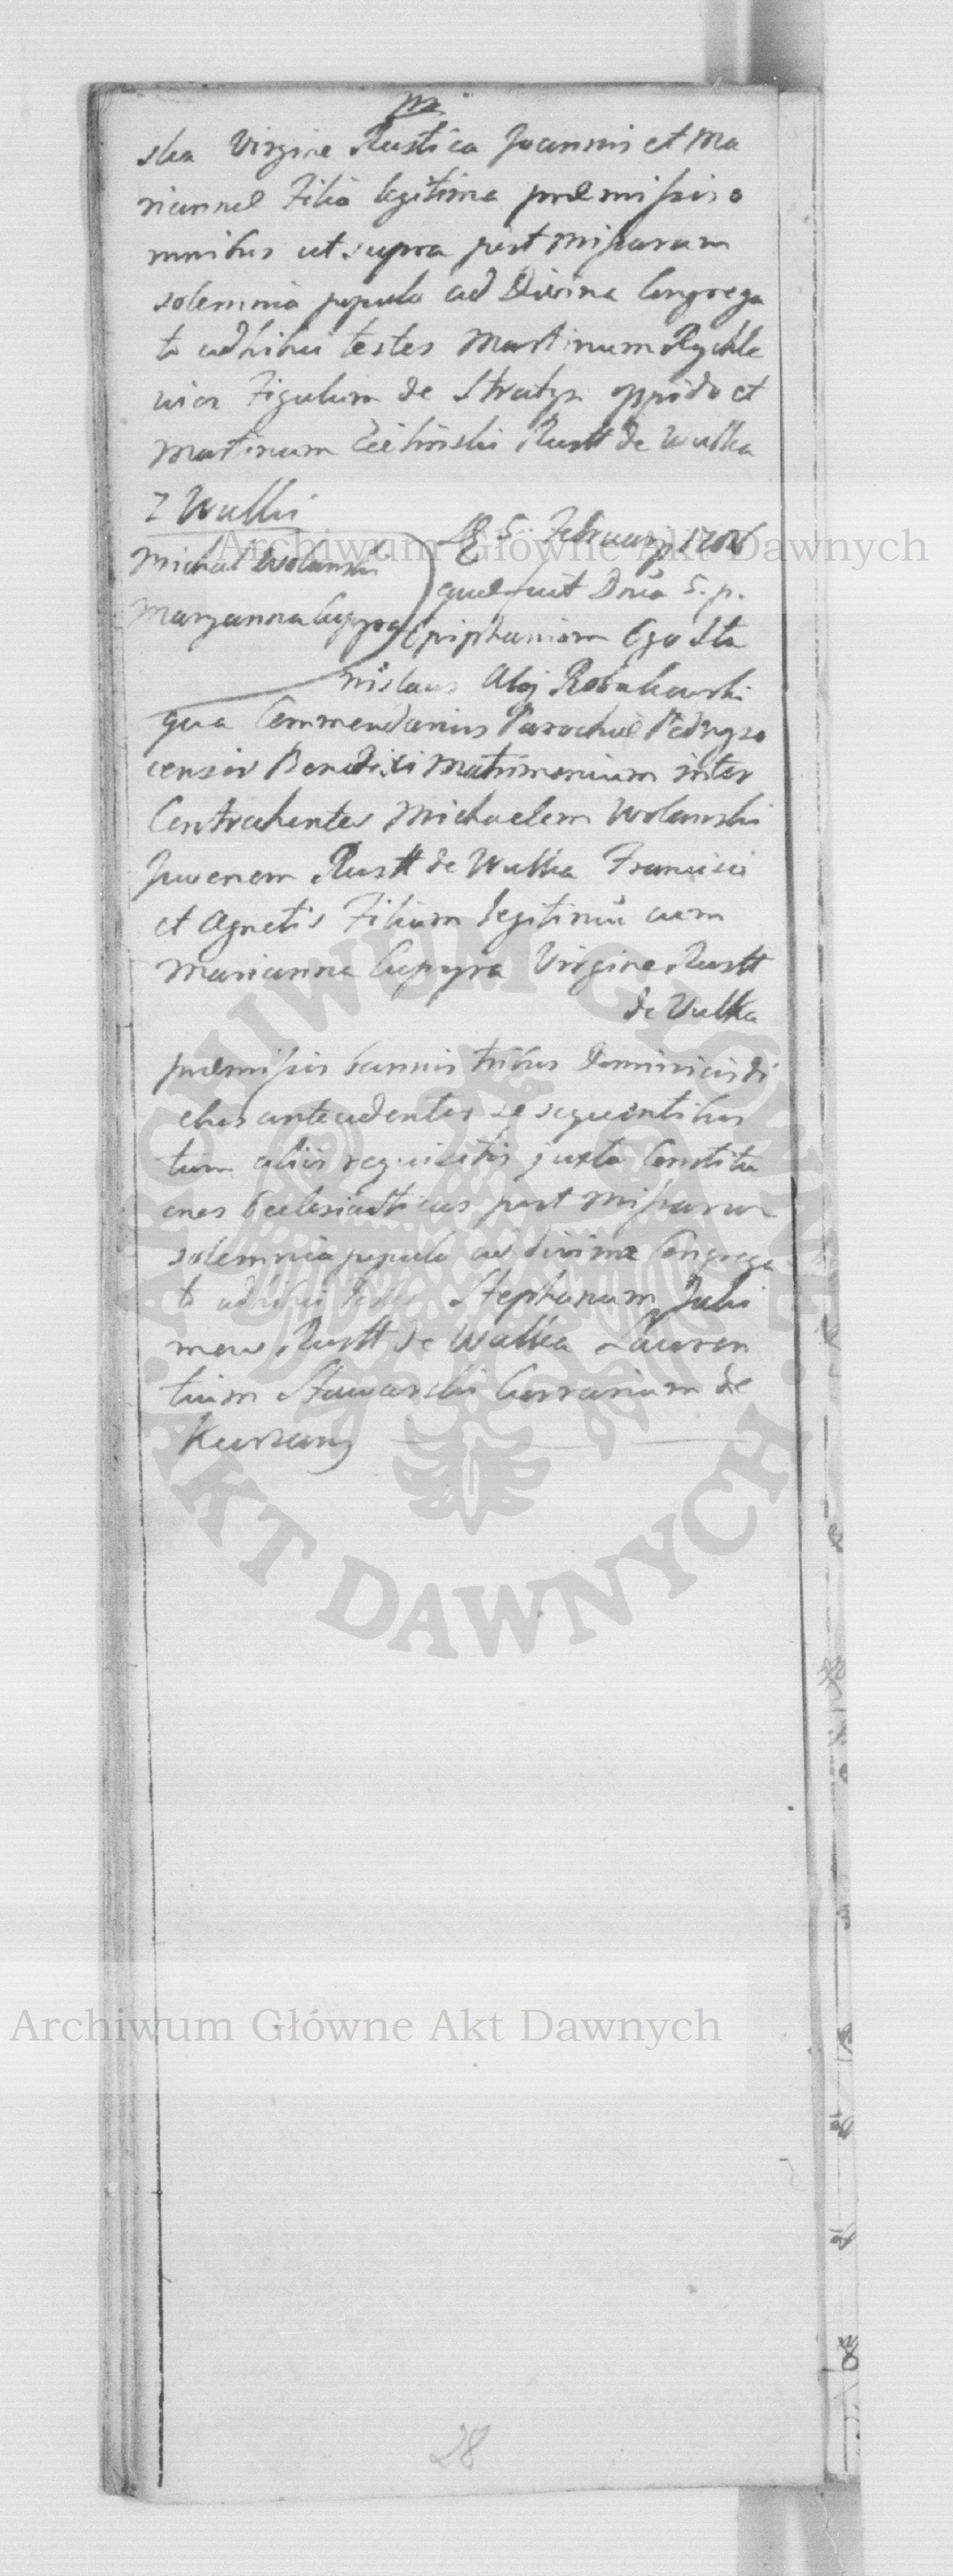 ska Virgine Rustica Joannis et Ma
riannae Filia legitima praemissis o
mnibus ut supra post Missarum
solemnia populo ad Divina Congrega
to adhibui testes Martinum Rychle
wicz Figulum de Stratyn oppido et
Martinum Rustt de Wulka
z Wulki
Michał Wolanski
Maryanna Cupyra
5 February
quae fuit Dnca 5. p.
Epiphaniam Ego Sta
nislaus Aloj Robakowski
qua Commendarius Parochiae
censis Benedixi Matrimonium inter
Contrahentes Michaelem Wolanski
Juvenem Rustt de Wulka Francisci
et Agnetis Filium legitimū cum
Marianna Cupyra Virgine Rustt
de Wulka
praemissis bannis tribus Dominicis di
ebus antecedenter se sequentibus
tum aliis requisitis juxta Constitu
ones Ecclesiasticas post Missarum
solemnia populo ad divina Congrega
to adhibui testes Stephanum Jaki
mow Rustt de Wulka Lauren
tium Stawarski Currarium de
Kurzany
28
Archiwum Główne Akt Dawnych
Archiwum Główne Akt Dawnych
ARCHIWUM GŁÓWNE
AKT DAWNYCH